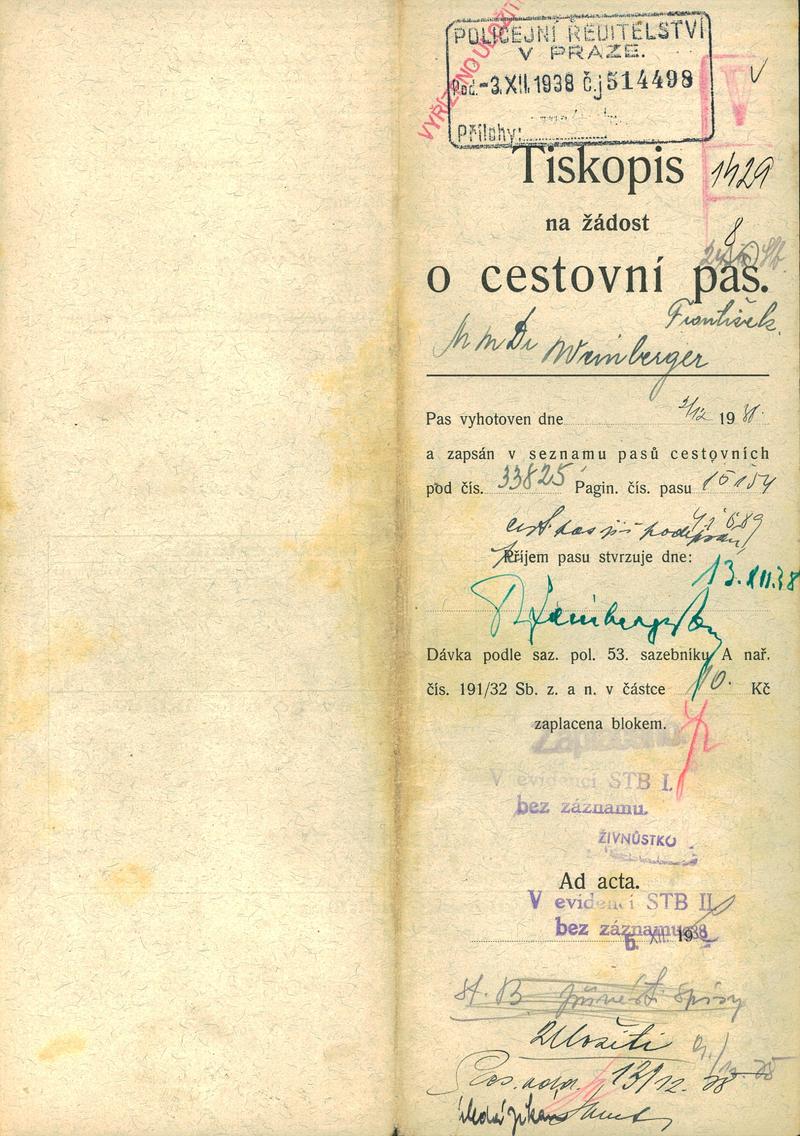 VYŘÍZENO ULOŽITI
POLICEJNÍ ŘEDITELSTVÍ
V PRAZE.
Pod. -3.XII.1938 č.j 514498
Přílohy:
V
Tiskopis
1429
na žádost
8
o cestovní pas.
František
MUDr Weinberger
Pas vyhotoven dne 1938.
a zapsán v seznamu pasů cestovních
pod čís. 33825 Pagin. čís. pasu 15154
Příjem pasu stvrzuje dne:
13.XII.38
Weinberger
Dávka podle saz. pol. 53. sazebníku A nař.
čís. 191/32 Sb. z. a n. v částce 10. Kč
zaplacena blokem.
Zaplaceno
V evidenci STB I.
bez záznamu.
ŽIVNŮSTKO
Ad acta.
V evidenci STB II
bez záznamu
6. XII. 1938
st. B. spisy
Uložiti
13/12. 38